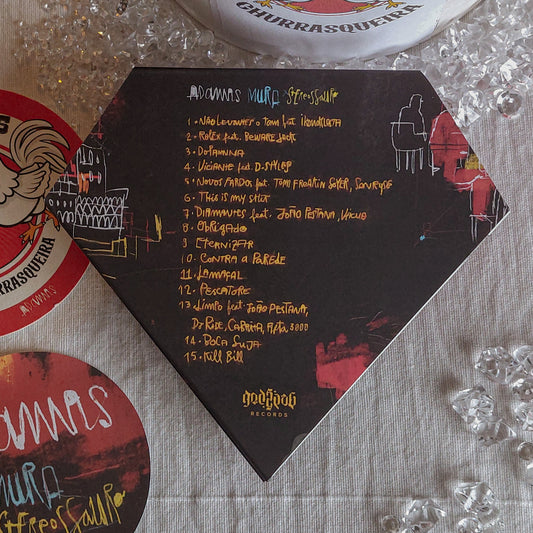 CHURRASQUEIRA
ADAMAS MURA STEREOSSAURO
1 · NÃO LEVANTES O TOM feat. IKONOKLASTA
2 · ROLEX feat. BEWARE JACK
3 · DOPAMINA
4 · VICIANTE feat. D-STYLEP
5 · NOVOS FARDOS feat. TOM FREAKIN SOYER, SONRYSE
6 · THIS IS MY SHIT
7 · DIAMANTES feat. JOÃO PESTANA, VÁCUO
8 · OBRIGADO
9 ETERNIZAR
10 · CONTRA A PAREDE
11 · LAMAÇAL
12 · PESCATORE
13 · LIMPO feat. JOÃO PESTANA,
DJ RIDE,
14 · BOCA SUJA
15 · KILL BILL
RECORDS
CHURRASQUEIRA
ADAMAS
ADAMAS
MURA
STEREOSSAURO